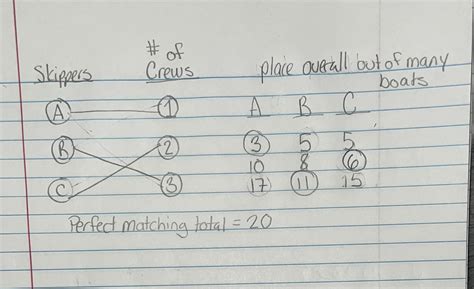 # of
Skippers Crews place overall out of many
boats
A 1 A B C
B 2 3 5 5
10 8 6
C 3 17 11 15
Perfect matching total = 20